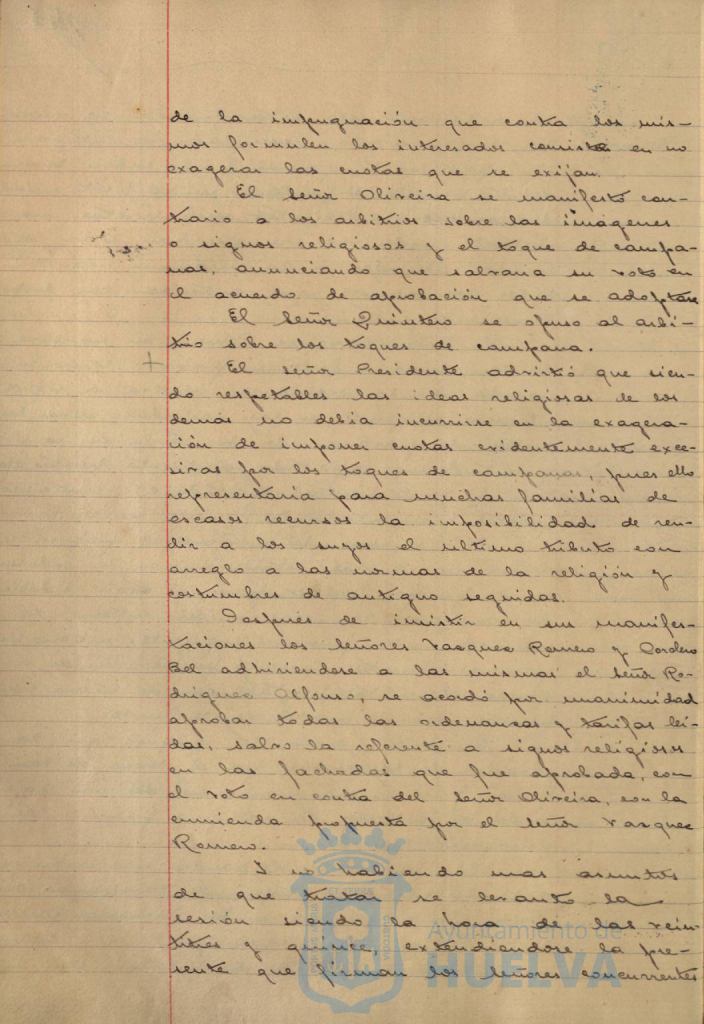 de la impugnación que contra los mis-
mos formulen los interesados consista en no
exagerar las cuotas que se exijan.
El Señor Oliveira se manifestó con-
trario a los arbitrios sobre las imágenes
o signos religiosos y el toque de campa-
nas, anunciando que salvaria su voto en
el acuerdo de aprobación que se adoptare
El Señor Quintero se opuso al arbi-
trio sobre los toques de campana.
El señor Presidente advirtió que sien-
do respetables las ideas religiosas de los
demás no debia incurrirse en la exagera-
ción de imponer cuotas evidentemente exce-
sivas por los toques de campanas, pues ello
representaria para muchas familias de
escasos recursos la imposibilidad de ren-
dir a los suyos el ultimo tributo con
arreglo a las normas de la religión y
costumbres de antiguo seguidas.
Después de insistir en sus manifes-
taciones los Señores Vazquez Romero y Cordero
Bel adhiriendose a las mismas el Señor Ro-
driguez Alfonso, se acordó por unanimidad
aprobar todas las ordenanzas y tarifas lei-
das, salvo la referente a signos religiosos
en las fachadas que fue aprobada, con
el voto en contra del Señor Oliveira, con la
enmienda propuesta por el Señor Vazquez
Romero.
Y no habiendo mas asuntos
de que tratar se levantó la
sesión siendo la hora de las vein-
titres y quince, extendiendose la pre-
sente que firman los Señores concurrentes
Ayuntamiento de
HUELVA